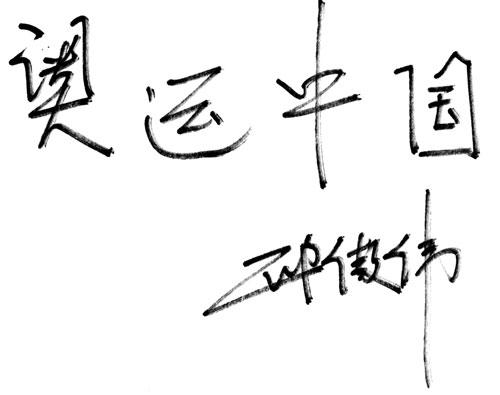 奥运中国
钟傲伟